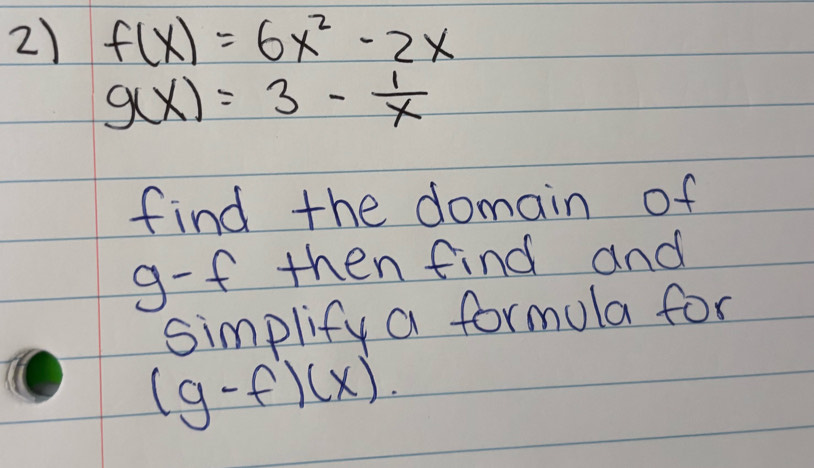 2) f(x) = 6x² - 2x
g(x) = 3 - 1/x
find the domain of
g-f then find and
simplify a formula for
(g-f)(x).